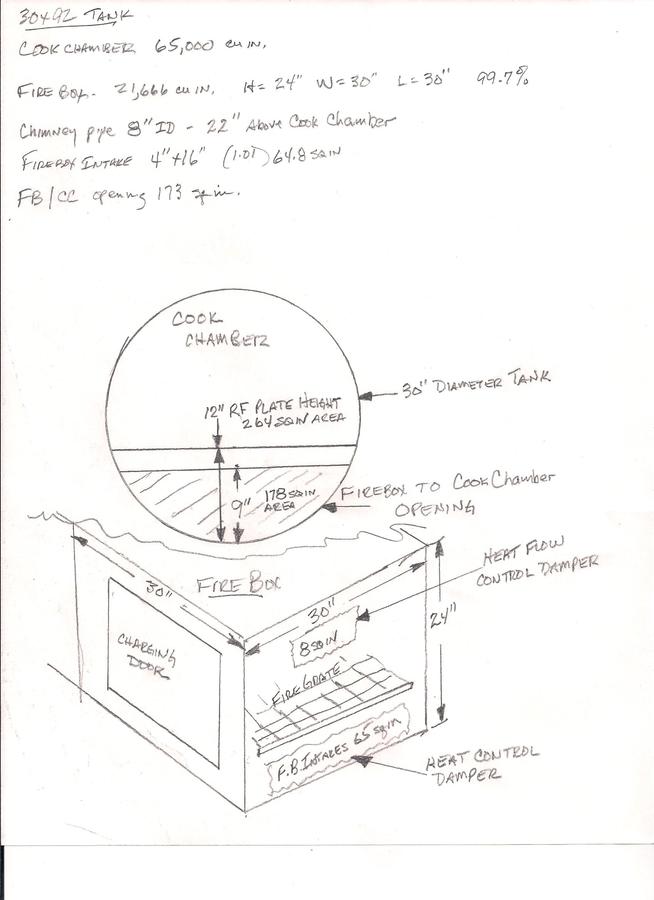 30x92 TANK
COOK CHAMBER 65,000 cu in.
FIRE BOX. 21,666 cu in. H= 24" W=30" L=30" 99.7%
Chimney pipe 8" ID - 22" Above Cook Chamber
FIREBOX INTAKE 4"x16" (1.01) 64.8 SQ IN
FB/CC opening 173 sq in.
COOK
CHAMBER
12" RF PLATE HEIGHT
264 SQ IN AREA
30" DIAMETER TANK
9" 178 SQ IN
AREA
FIREBOX TO Cook Chamber
OPENING
HEAT FLOW
CONTROL DAMPER
30"
FIRE BOX
30"
24"
CHARGING
DOOR
8 SQ IN
FIRE GRATE
F.B. INTAKES 65 sq in
HEAT CONTROL
DAMPER